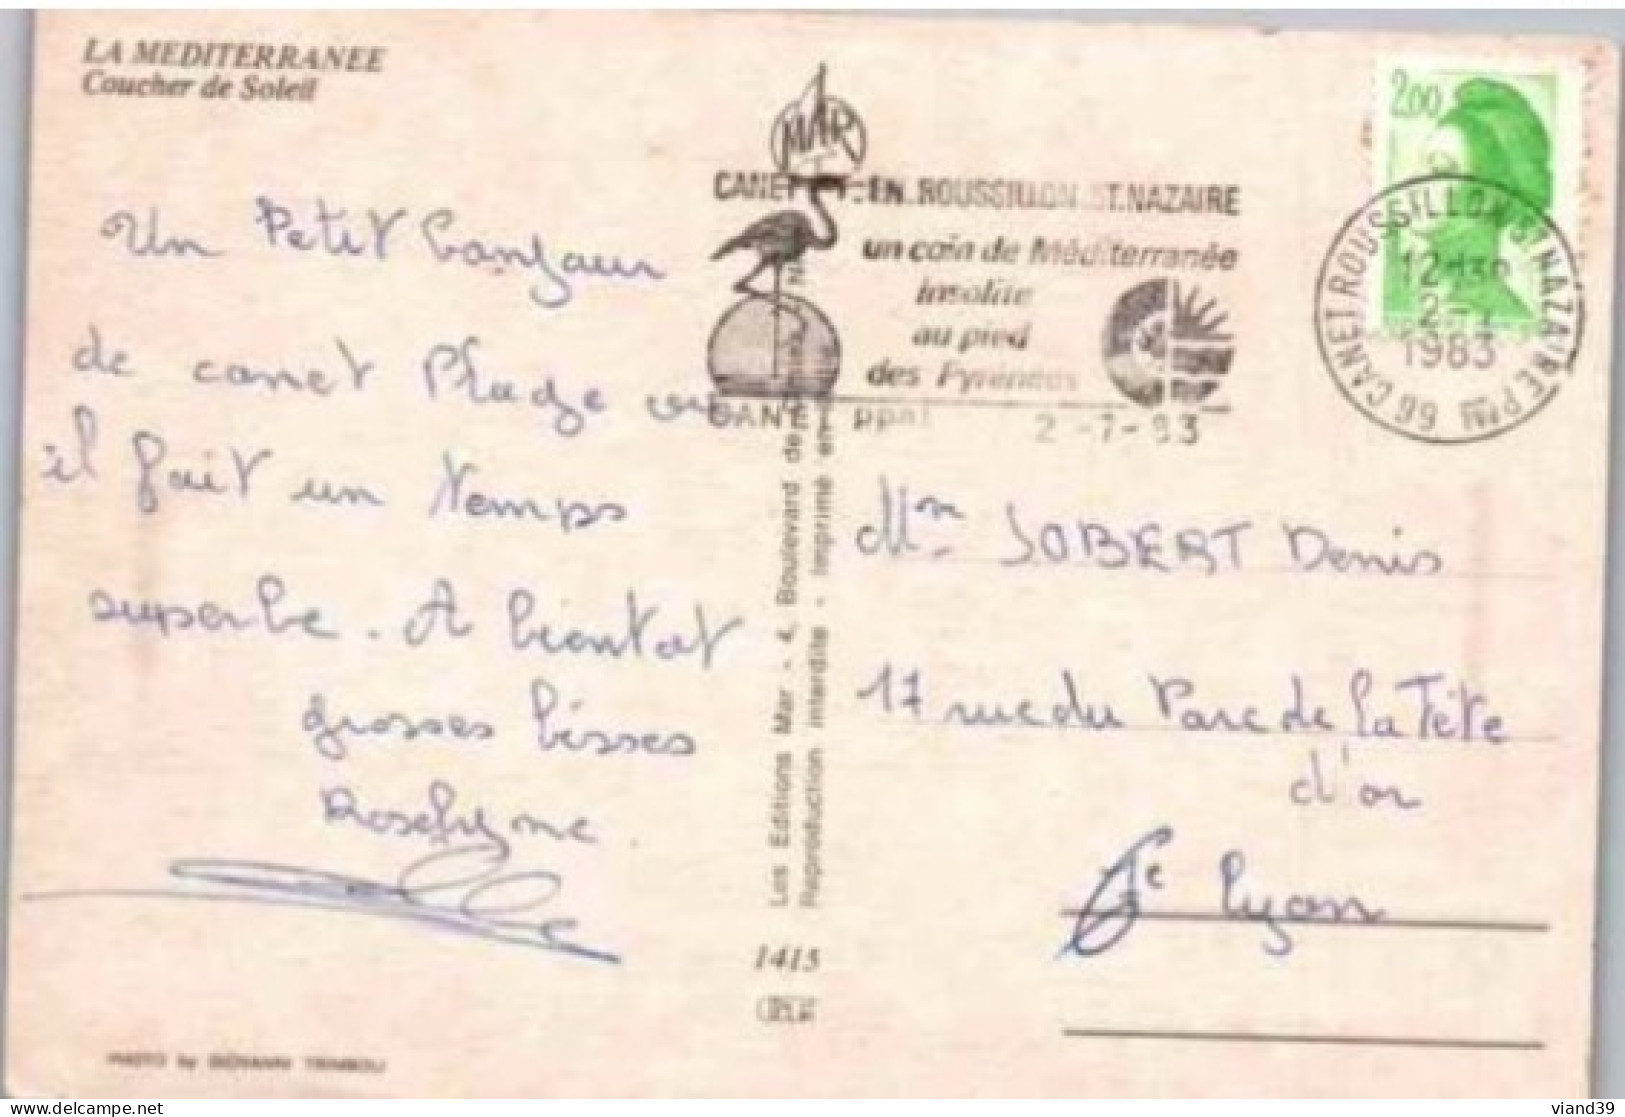 LA MEDITERRANEE
Coucher de Soleil
Un Petit Bonjour
de canet Plage ou
il fait un temps
superbe. A bientot
grosses bisses
PHOTO by GIOVANNI TRIMBOLI
MAR
CANET EN ROUSSILLON ST.NAZAIRE
un coin de Méditerranée
insolite
au pied
des Pyrénées
CANET ppal 2-7-83
Les Editions Mar - 4, Boulevard de
Reproduction interdite - Imprimé en
1415
2,00
66 CANET ROUSSILLON ST NAZAIRE PPAL
12 H30
2-7
1983
Mr JOBERT Denis
17 rue du Parc de la Tête
d'or
6e Lyon
viand39